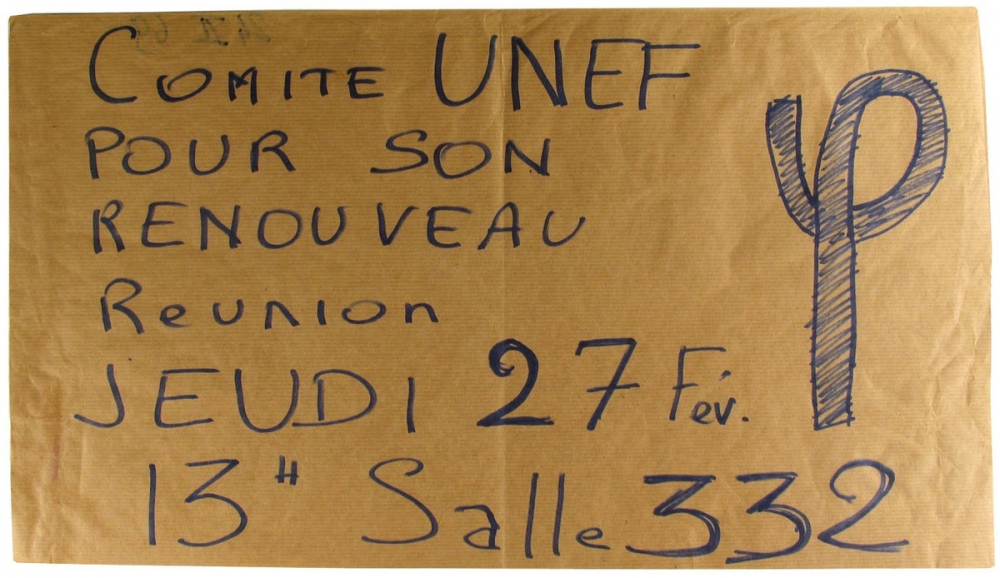 COMITE UNEF
POUR SON
RENOUVEAU
ReUNION
JEUDI 27 Fév.
13H Salle 332
φ